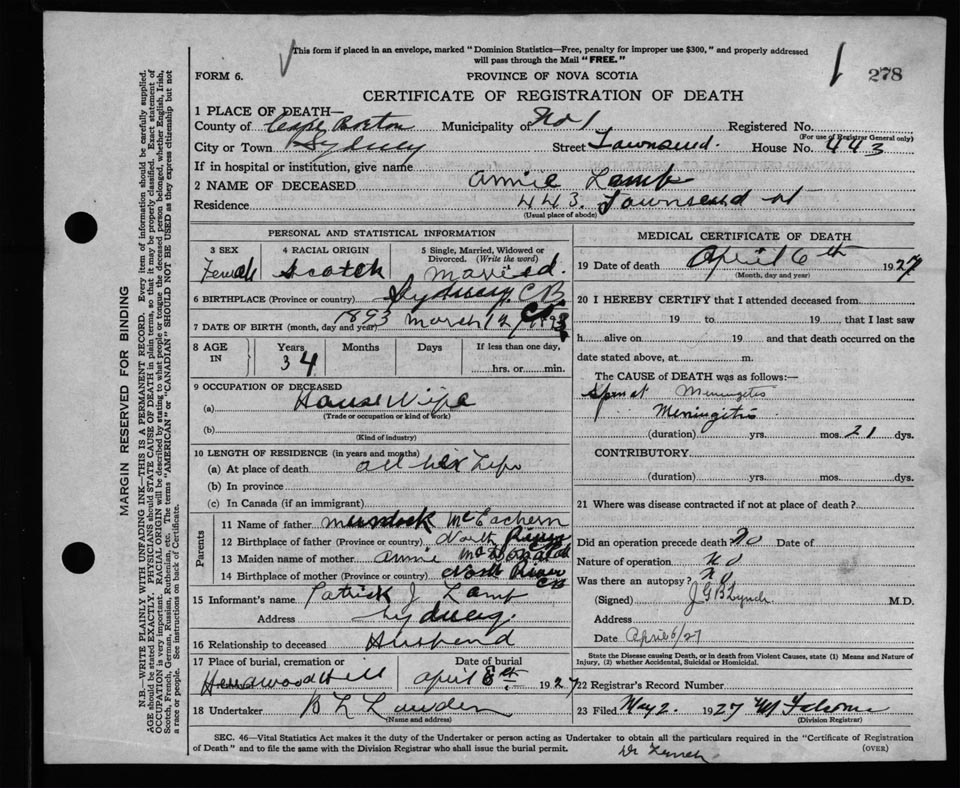 This form if placed in an envelope, marked "Dominion Statistics—Free, penalty for improper use $300," and properly addressed
will pass through the Mail "FREE."
FORM 6.
PROVINCE OF NOVA SCOTIA
278
CERTIFICATE OF REGISTRATION OF DEATH
1 PLACE OF DEATH—
County of Cape Breton Municipality of No 1 Registered No.
(For use of Registrar General only)
City or Town Sydney Street Townsend. House No. 443
If in hospital or institution, give name
2 NAME OF DECEASED Annie Lamb
Residence 443. Townsend st
(Usual place of abode)
PERSONAL AND STATISTICAL INFORMATION
3 SEX 4 RACIAL ORIGIN 5 Single, Married, Widowed or Divorced. (Write the word)
Female Scotch Married.
6 BIRTHPLACE (Province or country) Sydney. C B.
7 DATE OF BIRTH (month, day and year) 1893 March 12/1893
8 AGE IN Years Months Days If less than one day,
34 hrs. or min.
9 OCCUPATION OF DECEASED
(a) House Wife
(Trade or occupation or kind of work)
(b)
(Kind of industry)
10 LENGTH OF RESIDENCE (in years and months)
(a) At place of death all her Life
(b) In province
(c) In Canada (if an immigrant)
Parents
11 Name of father Murdock McEachern
12 Birthplace of father (Province or country) North River CB
13 Maiden name of mother Annie McDonald
14 Birthplace of mother (Province or country) North River CB
15 Informant's name Patrick J Lamb
Address Sydney.
16 Relationship to deceased Husbend
17 Place of burial, cremation or Date of burial
Hardwood Hill April 8th 1927
18 Undertaker B L
(Name and address)
MEDICAL CERTIFICATE OF DEATH
19 Date of death April 6th 1927
(Month, day and year)
20 I HEREBY CERTIFY that I attended deceased from
19 to 19, that I last saw
h alive on 19 and that death occurred on the
date stated above, at m.
The CAUSE of DEATH was as follows:—
Spinal Meningetis
Meningetis
(duration) yrs. mos. 21 dys.
CONTRIBUTORY
(duration) yrs. mos. dys.
21 Where was disease contracted if not at place of death?
Did an operation precede death? No Date of
Nature of operation No
Was there an autopsy? No
(Signed) J G B Lynch M.D.
Address
Date April 6/27
State the Disease causing Death, or in death from Violent Causes, state (1) Means and Nature of
Injury, (2) whether Accidental, Suicidal or Homicidal.
22 Registrar's Record Number
23 Filed May 2. 1927
(Division Registrar)
SEC. 46—Vital Statistics Act makes it the duty of the Undertaker or person acting as Undertaker to obtain all the particulars required in the "Certificate of Registration
of Death" and to file the same with the Division Registrar who shall issue the burial permit.
(OVER)
Dr Lynch
MARGIN RESERVED FOR BINDING
N.B.—WRITE PLAINLY WITH UNFADING INK—THIS IS A PERMANENT RECORD. Every item of information should be carefully supplied.
AGE should be stated EXACTLY. PHYSICIANS should STATE CAUSE OF DEATH in plain terms, so that it may be properly classified. Exact statement of
OCCUPATION is very important. RACIAL ORIGIN will be described by stating to what people or tongue the deceased person belonged, whether English, Irish,
Scotch, French, German, Russian, Ruthenian, etc. The terms "AMERICAN" or "CANADIAN" SHOULD NOT BE USED as they express citizenship but not
a race or people. See instructions on back of Certificate.